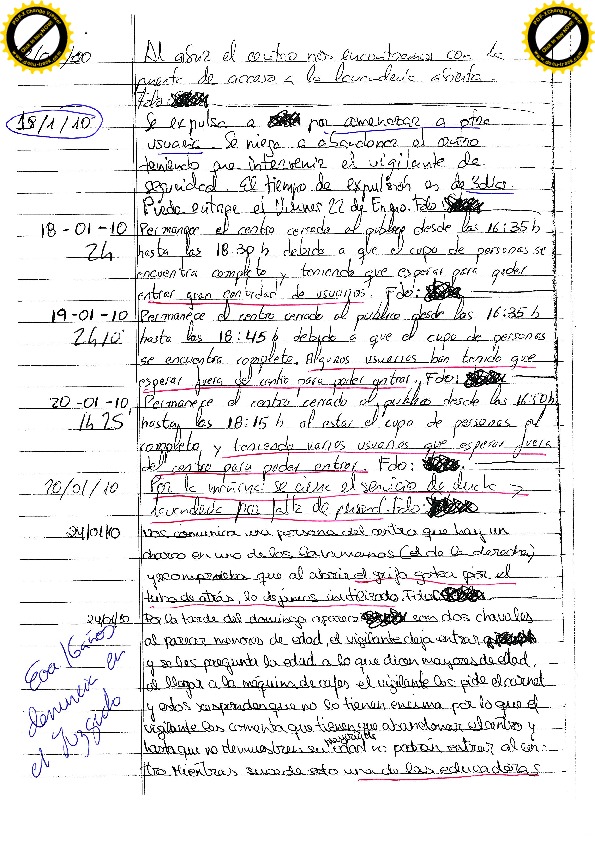 /00 Al abrir el centro nos encontramos con la
puerta de acceso a la lavandería abierta.
Fdo:
18/1/10 Se expulsa a por amenazar a otra
usuaria. Se niega a abandonar el centro
teniendo que intervenir el vigilante de
seguridad. El tiempo de expulsión es de 3 días
Puede entrar el Viernes 22 de Enero. Fdo:
18-01-10 Permanece el centro cerrado al publico desde las 16:35h
2h hasta las 18:30h debido a que el cupo de personas se
encuentra completo y teniendo que esperar para poder
entrar gran cantidad de usuarios. Fdo:
19-01-10 Permanece el centro cerrado al publico desde las 16:35h
2h10' hasta las 18:45h debido a que el cupo de personas
se encuentra completo. Algunos usuarios han tenido que
esperar fuera del centro para poder entrar. Fdo:
20-01-10 Permanece el centro cerrado al publico desde las 16:50h
1h 25' hasta las 18:15h al estar el cupo de personas
completo y teniendo varios usuarios que esperar fuera
del centro para poder entrar. Fdo:
20/01/10 Por la mañana se cierra el servicio de ducha y
lavandería por falta de personal. Fdo:
24/01/10 Nos comunica una persona del centro que hay un
charco en uno de los lavamanos (el de la derecha)
y comprobamos que al abrir el grifo gotea por el
tubo de atrás, lo dejamos inutilizado. Fdo:
24/01/10 Por la tarde del domingo aparece con dos chavales
al parecer menores de edad, el vigilante deja entrar a
y se les pregunta la edad a lo que dicen mayores de edad,
al llegar a la máquina de cafés el vigilante les pide el carnet
y estos responden que no lo tienen encima por lo que el
vigilante les comenta que tienen que abandonar el centro y
hasta que no demuestren su mayoría de edad no podrán entrar al cen-
tro. Mientras sucede esto una de las educadoras
Eva 16 años
denuncia en
el Juzgado